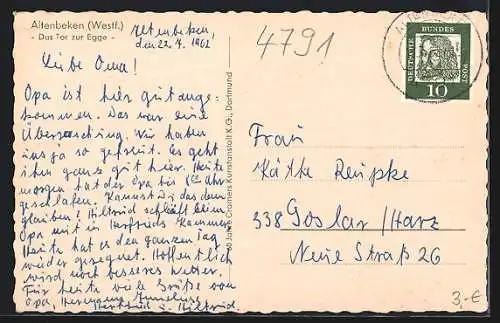 Altenbeken (Westf.)
- Das Tor zur Egge -
Altenbeken,
den 22.4.1962
Liebe Oma!
Opa ist hier gut ange-
kommen. Das war eine
Überraschung. Wir haben
uns ja so gefreut. Es geht
ihm ganz gut hier. Heute
morgen hat der Opa bis Uhr
geschlafen. Kannst Du das denn
glauben? Hiltrud schläft beim
Opa mit in Kammer
Heute hat es den ganzen Tag
wieder geregnet. Hoffentlich
wird noch besseres Wetter.
Für heute viele Grüße von
Opa, Hermann,
u. Hiltrud
Jahre Cramers Kunstanstalt K.G., Dortmund
4791
DEUTSCHE BUNDES POST
10
Frau
Käthe Reupke
338 Goslar/Harz
Neue Straß 26
3,-€